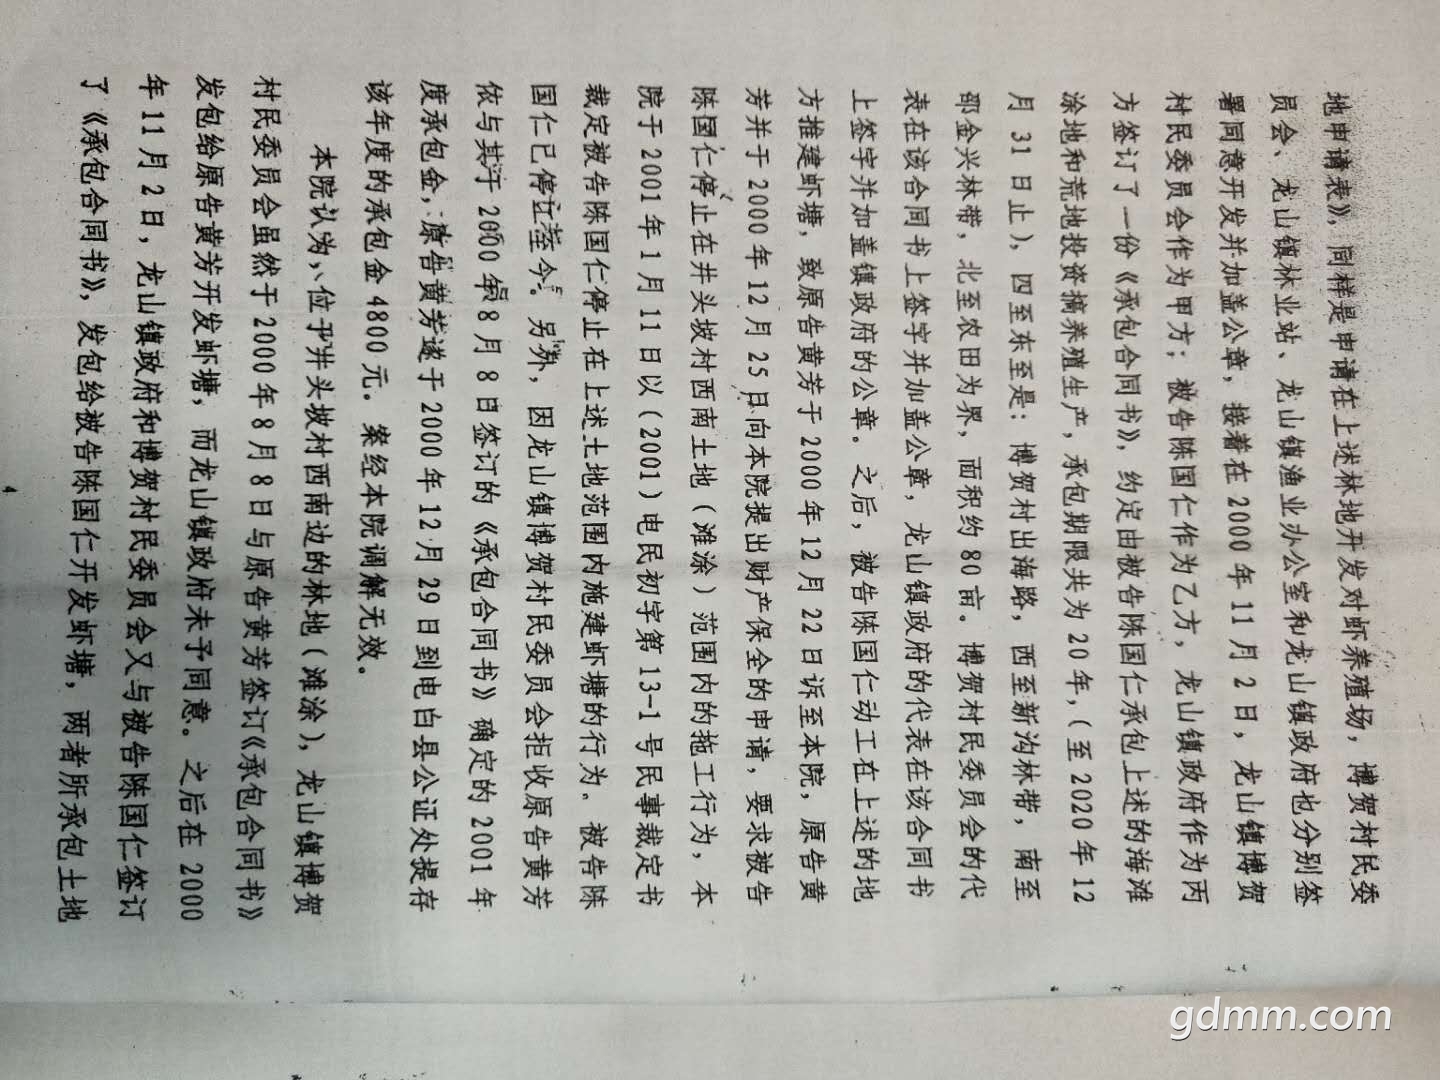 地申请表》，同样是申请在上述林地开发对虾养殖场，博贺村民委
员会、龙山镇林业站、龙山镇渔业办公室和龙山镇政府也分别签
署同意开发并加盖公章，接着在 2000 年 11 月 2 日，龙山镇博贺
村民委员会作为甲方；被告陈国仁作为乙方，龙山镇政府作为丙
方签订了一份《承包合同书》，约定由被告陈国仁承包上述的海滩
涂地和荒地投资搞养殖生产，承包期限共为 20 年，（至 2020 年 12
月 31 日止），四至东至是：博贺村出海路，西至新沟林带，南至
邵金兴林带，北至农田为界，面积约 80 亩。博贺村民委员会的代
表在该合同书上签字并加盖公章，龙山镇政府的代表在该合同书
上签字并加盖镇政府的公章。之后，被告陈国仁动工在上述的地
方推建虾塘，致原告黄芳于 2000 年 12 月 22 日诉至本院，原告黄
芳并于 2000 年 12 月 25 日向本院提出财产保全的申请，要求被告
陈国仁停止在井头坡村西南土地（滩涂）范围内的拖工行为，本
院于 2001 年 1 月 11 日以（2001）电民初字第 13-1 号民事裁定书
裁定被告陈国仁停止在上述土地范围内施建虾塘的行为。被告陈
国仁已停江至今。另外，因龙山镇博贺村民委员会拒收原告黄芳
依与其于 2000 年 8 月 8 日签订的《承包合同书》确定的 2001 年
度承包金，原告黄芳遂于 2000 年 12 月 29 日到电白县公证处提存
该年度的承包金 4800 元。案经本院调解无效。
本院认为，位于井头坡村西南边的林地（滩涂），龙山镇博贺
村民委员会虽然于 2000 年 8 月 8 日与原告黄芳签订《承包合同书》
发包给原告黄芳开发虾塘，而龙山镇政府未予同意。之后在 2000
年 11 月 2 日，龙山镇政府和博贺村民委员会又与被告陈国仁签订
了《承包合同书》，发包给被告陈国仁开发虾塘，两者所承包土地
4
gdmm.com